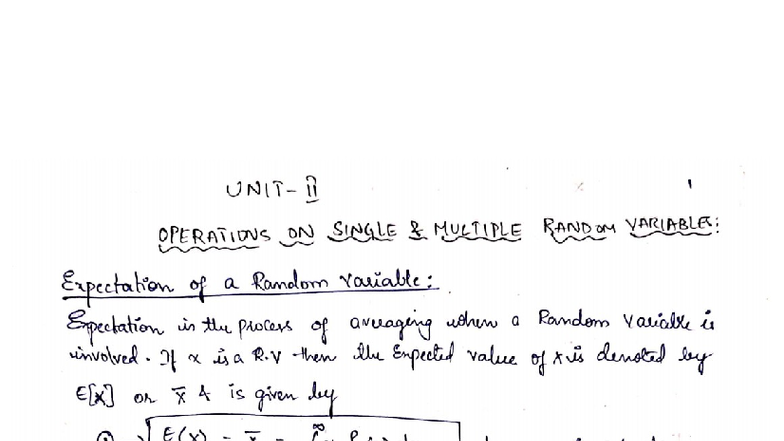 UNIT-II
1
OPERATIONS ON SINGLE & MULTIPLE RANDOM VARIABLES:
Expectation of a Random Variable:
Expectation is the process of averaging when a Random Variable is
involved. If x is a R.V then the Expected value of x is denoted by
E[x] or x̄ & is given by
E(x) = x̄ = ∫ ∞